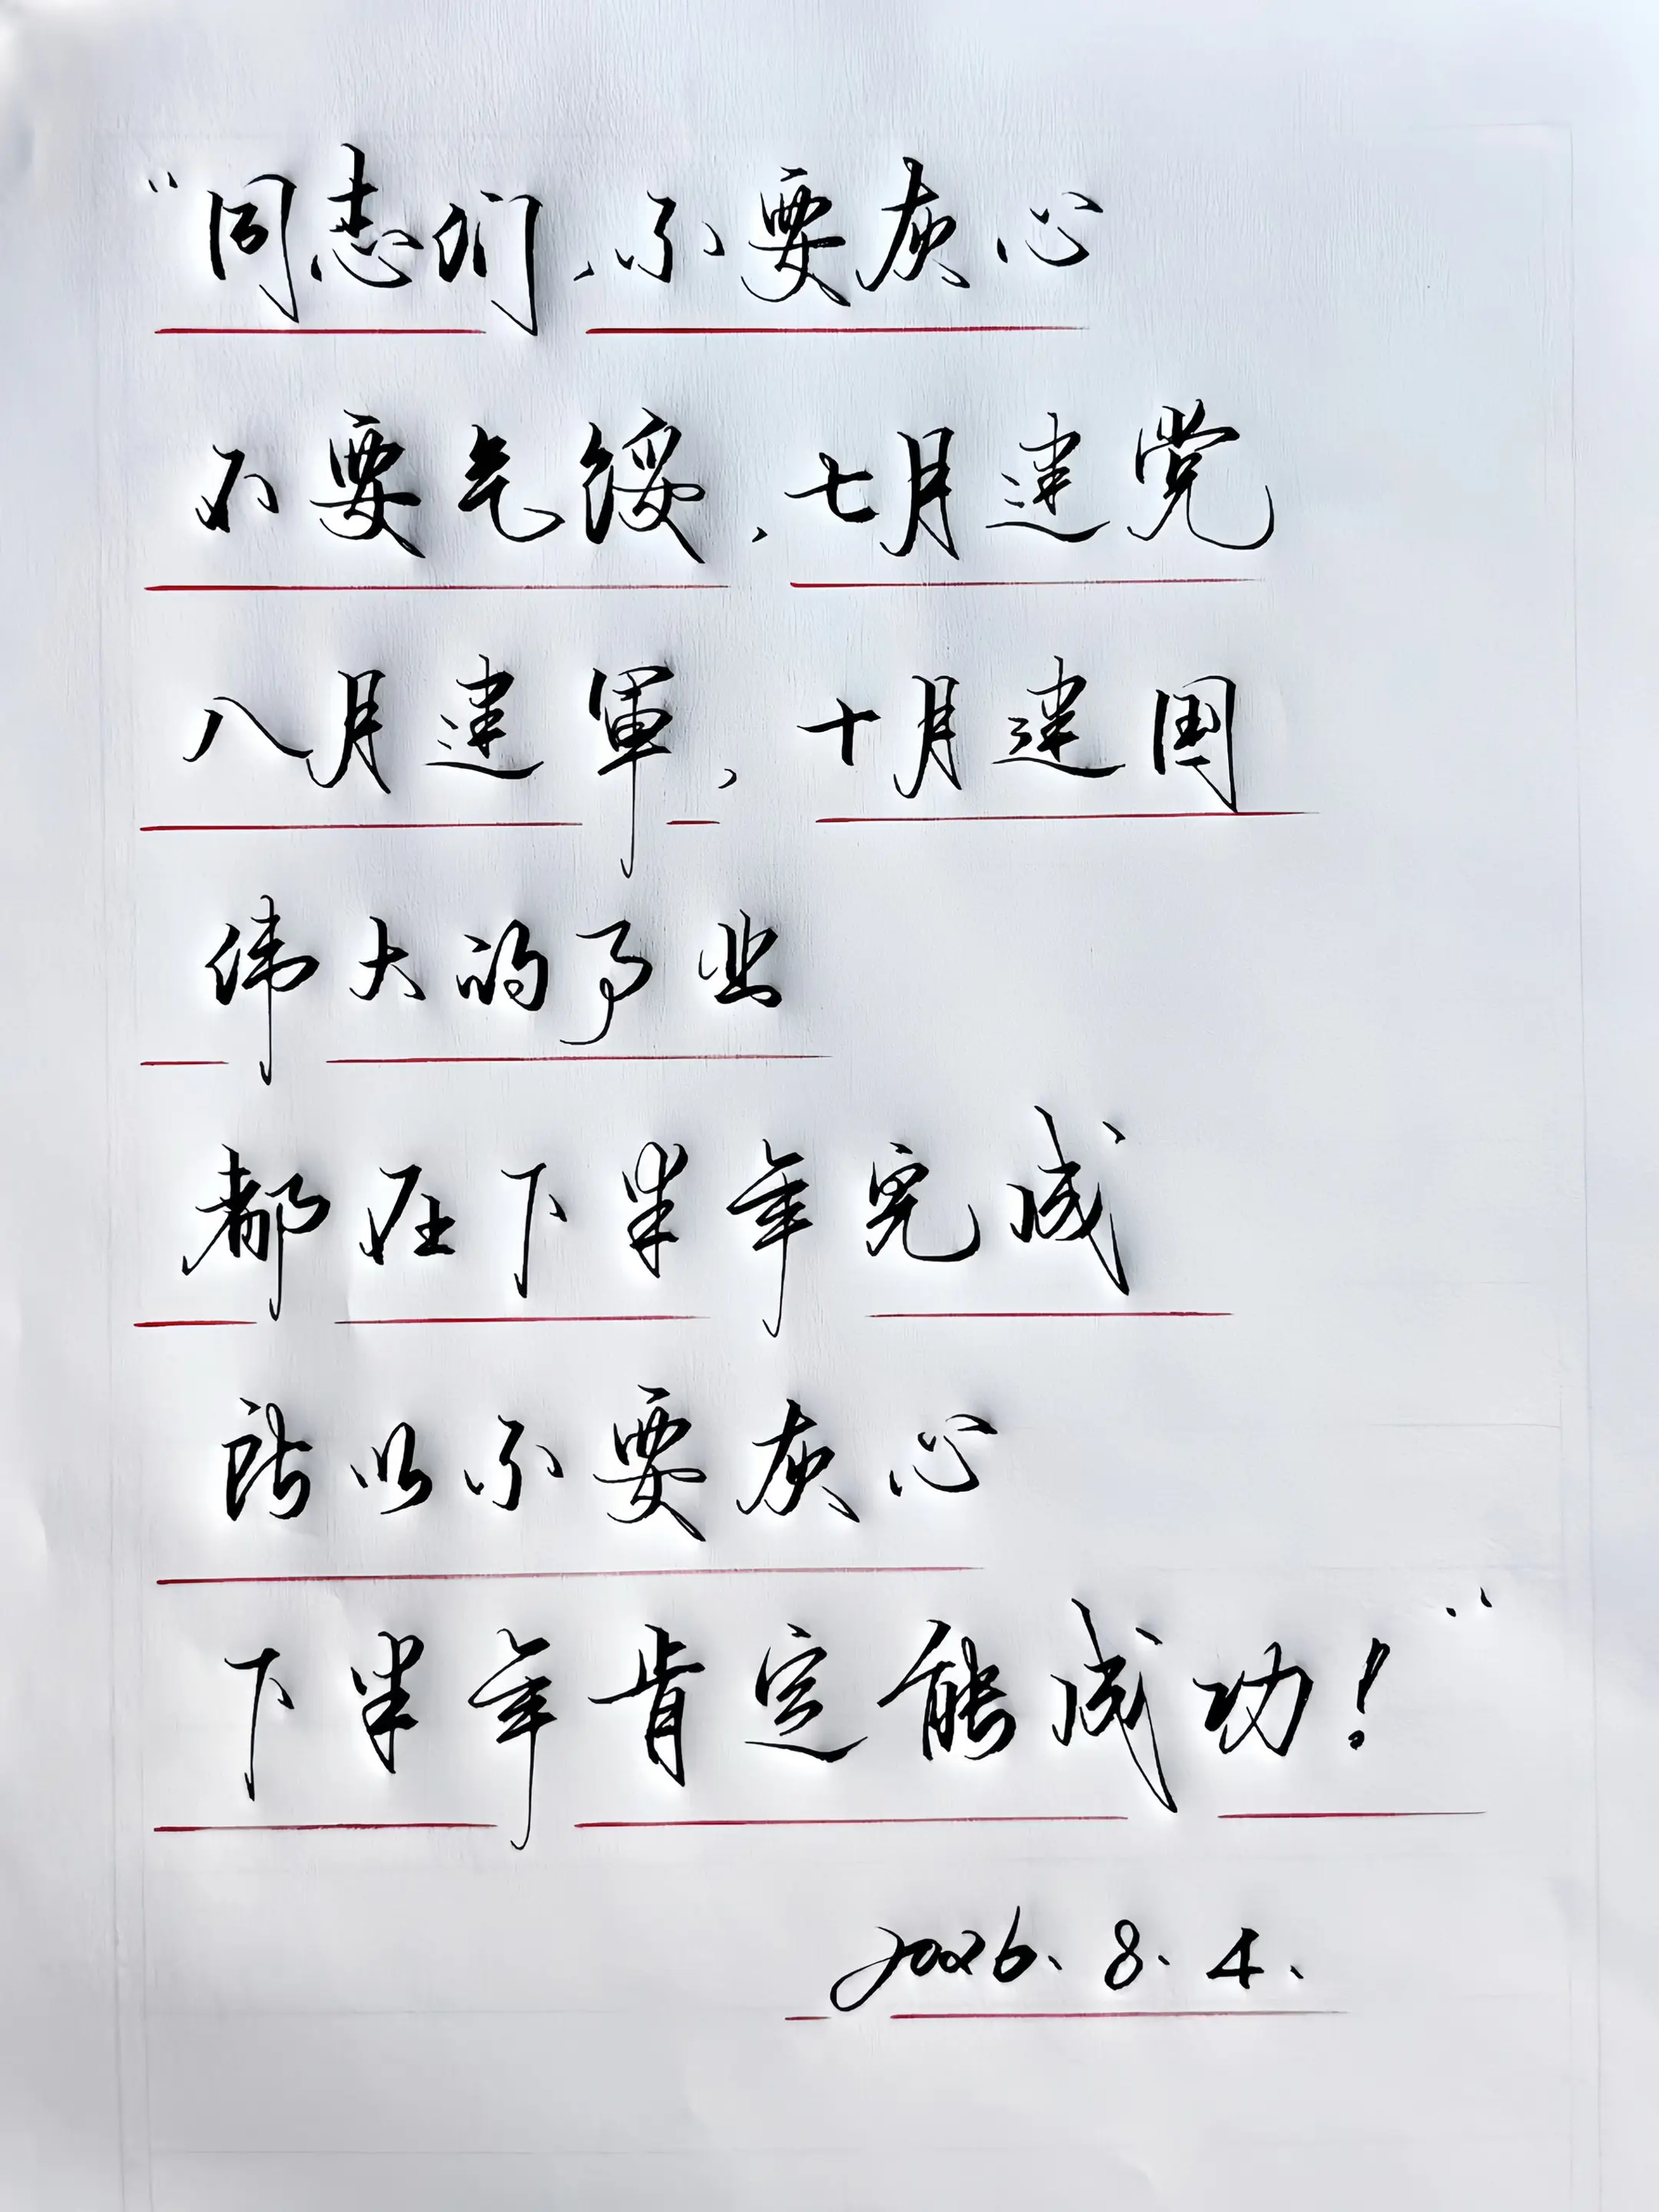 “同志们，不要灰心
不要气绥，七月建党
八月建軍，十月建国
伟大的事业
都在下半年完成
所以不要灰心
下半年肯定能成功！”
2026.8.4.